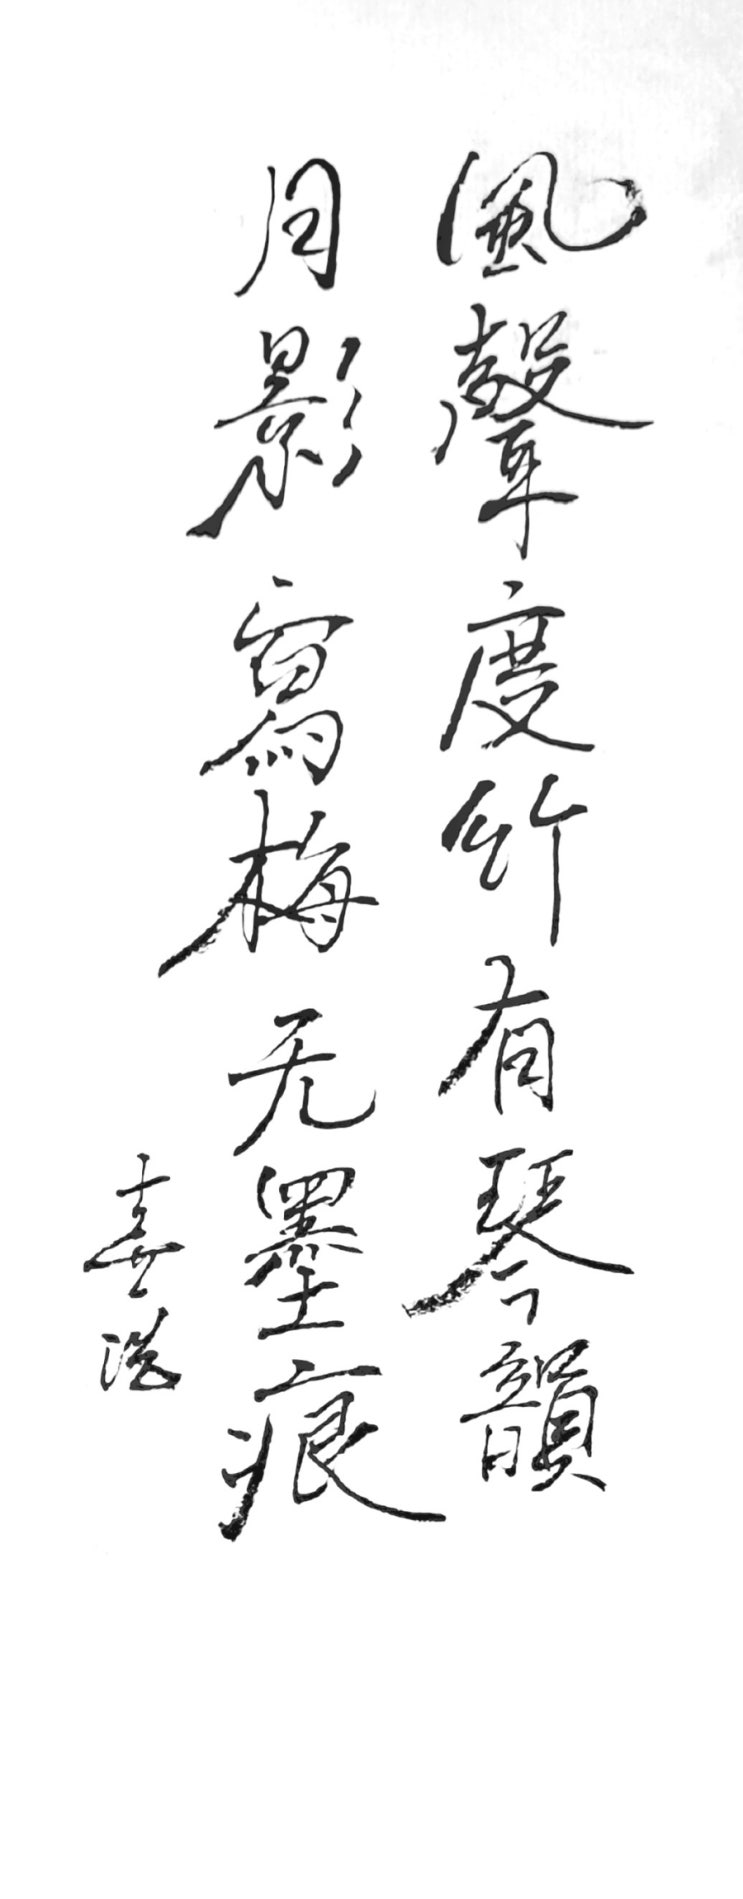 風聲度竹有琴韻
月影寫梅无墨痕
喜洪